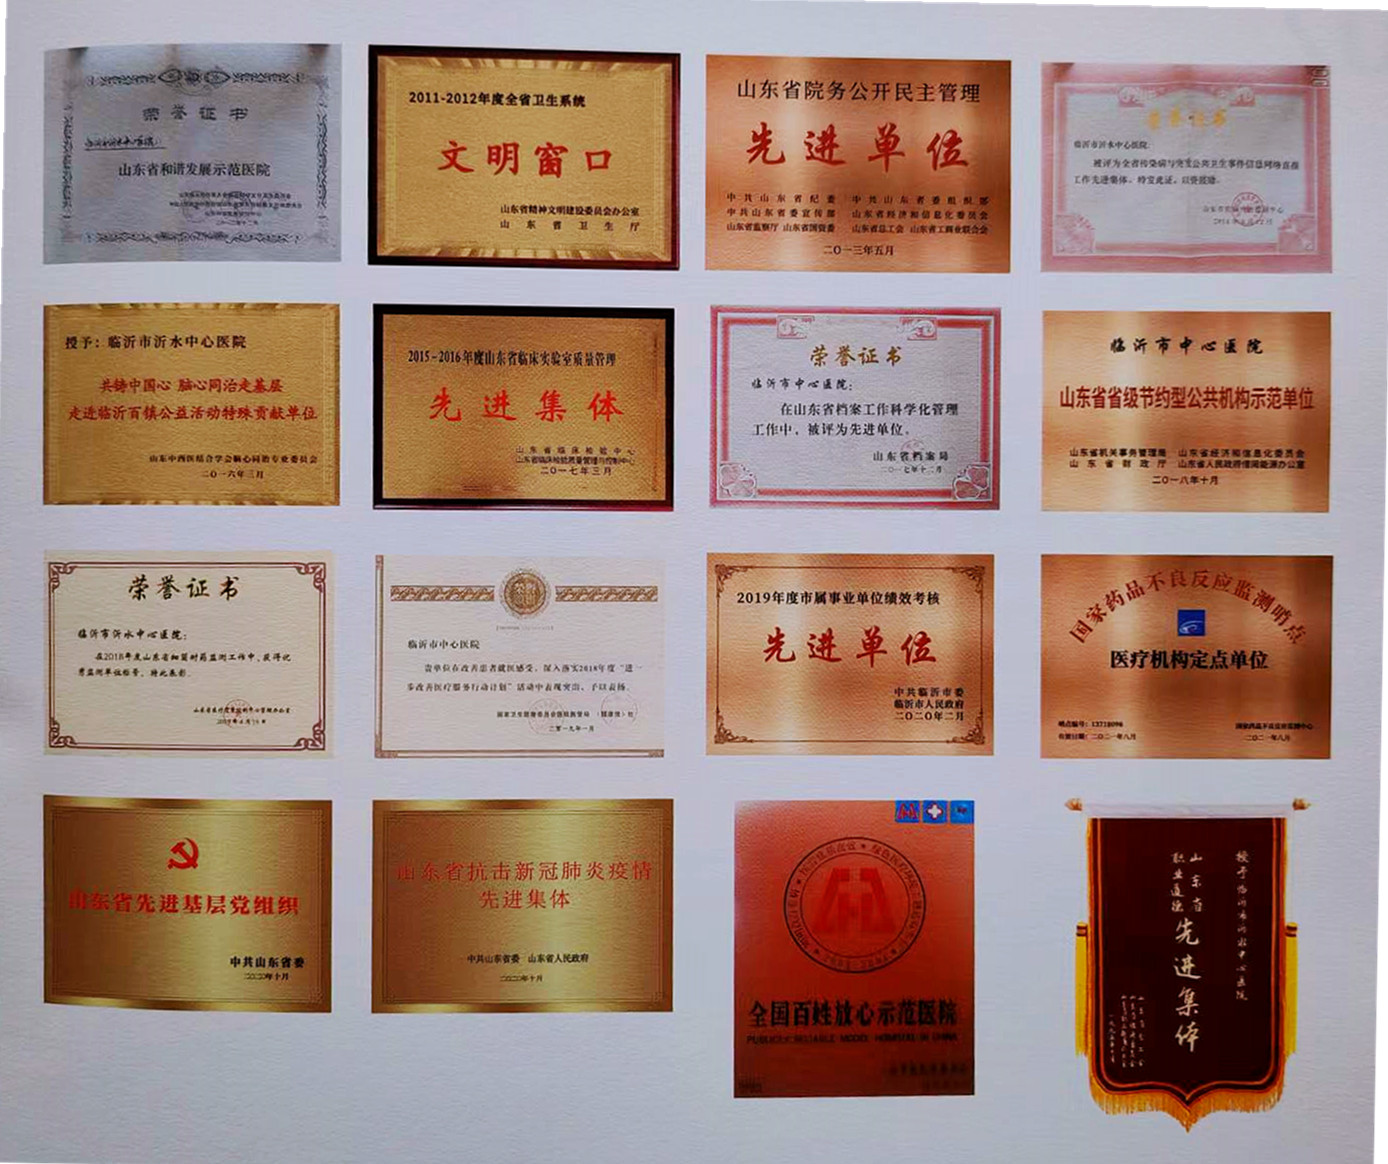 荣誉证书
山东省和谐发展示范医院
2011-2012年度全省卫生系统
文明窗口
山东省精神文明建设委员会办公室
山东省卫生厅
山东省院务公开民主管理
先进单位
中共山东省纪委 中共山东省委组织部
中共山东省委宣传部 山东省经济和信息化委员会
山东省监察厅 山东省国资委 山东省总工会 山东省工商业联合会
二〇一三年五月
荣誉证书
临沂市沂水中心医院:
被评为全省传染病与突发公共卫生事件信息网络直报
工作先进集体。特发此证,以资鼓励。
授予:临沂市沂水中心医院
共铸中国心 脑心同治走基层
走进临沂百镇公益活动特殊贡献单位
山东中西医结合学会脑心同治专业委员会
二〇一六年三月
2015-2016年度山东省临床实验室质量管理
先进集体
山东省临床检验中心
山东省临床检验质量管理与控制中心
二〇一七年三月
荣誉证书
临沂市中心医院:
在山东省档案工作科学化管理
工作中,被评为先进单位。
山东省档案局
二〇一七年十二月
临沂市中心医院
山东省省级节约型公共机构示范单位
山东省机关事务管理局 山东省经济和信息化委员会
山东省财政厅 山东省人民政府节约能源办公室
二〇一八年十月
荣誉证书
临沂市沂水中心医院:
在2018年度山东省细菌耐药监测工作中,获得优
秀监测单位称号,特此表彰.
临沂市中心医院
贵单位在改善患者就医感受,深入落实2018年度“进一
步改善医疗服务行动计划”活动中表现突出,予以表扬。
二零一九年一月
2019年度市属事业单位绩效考核
先进单位
中共临沂市委
临沂市人民政府
二〇二〇年二月
国家药品不良反应监测哨点
医疗机构定点单位
哨点编号:13718096
有效日期:二〇二一年八月
国家药品不良反应监测中心
二〇二一年八月
山东省先进基层党组织
中共山东省委
二〇二〇年十月
山东省抗击新冠肺炎疫情
先进集体
中共山东省委 山东省人民政府
二〇二〇年十月
全国百姓放心示范医院
授予临沂市沂水中心医院
山东省
职业道德
先进集体